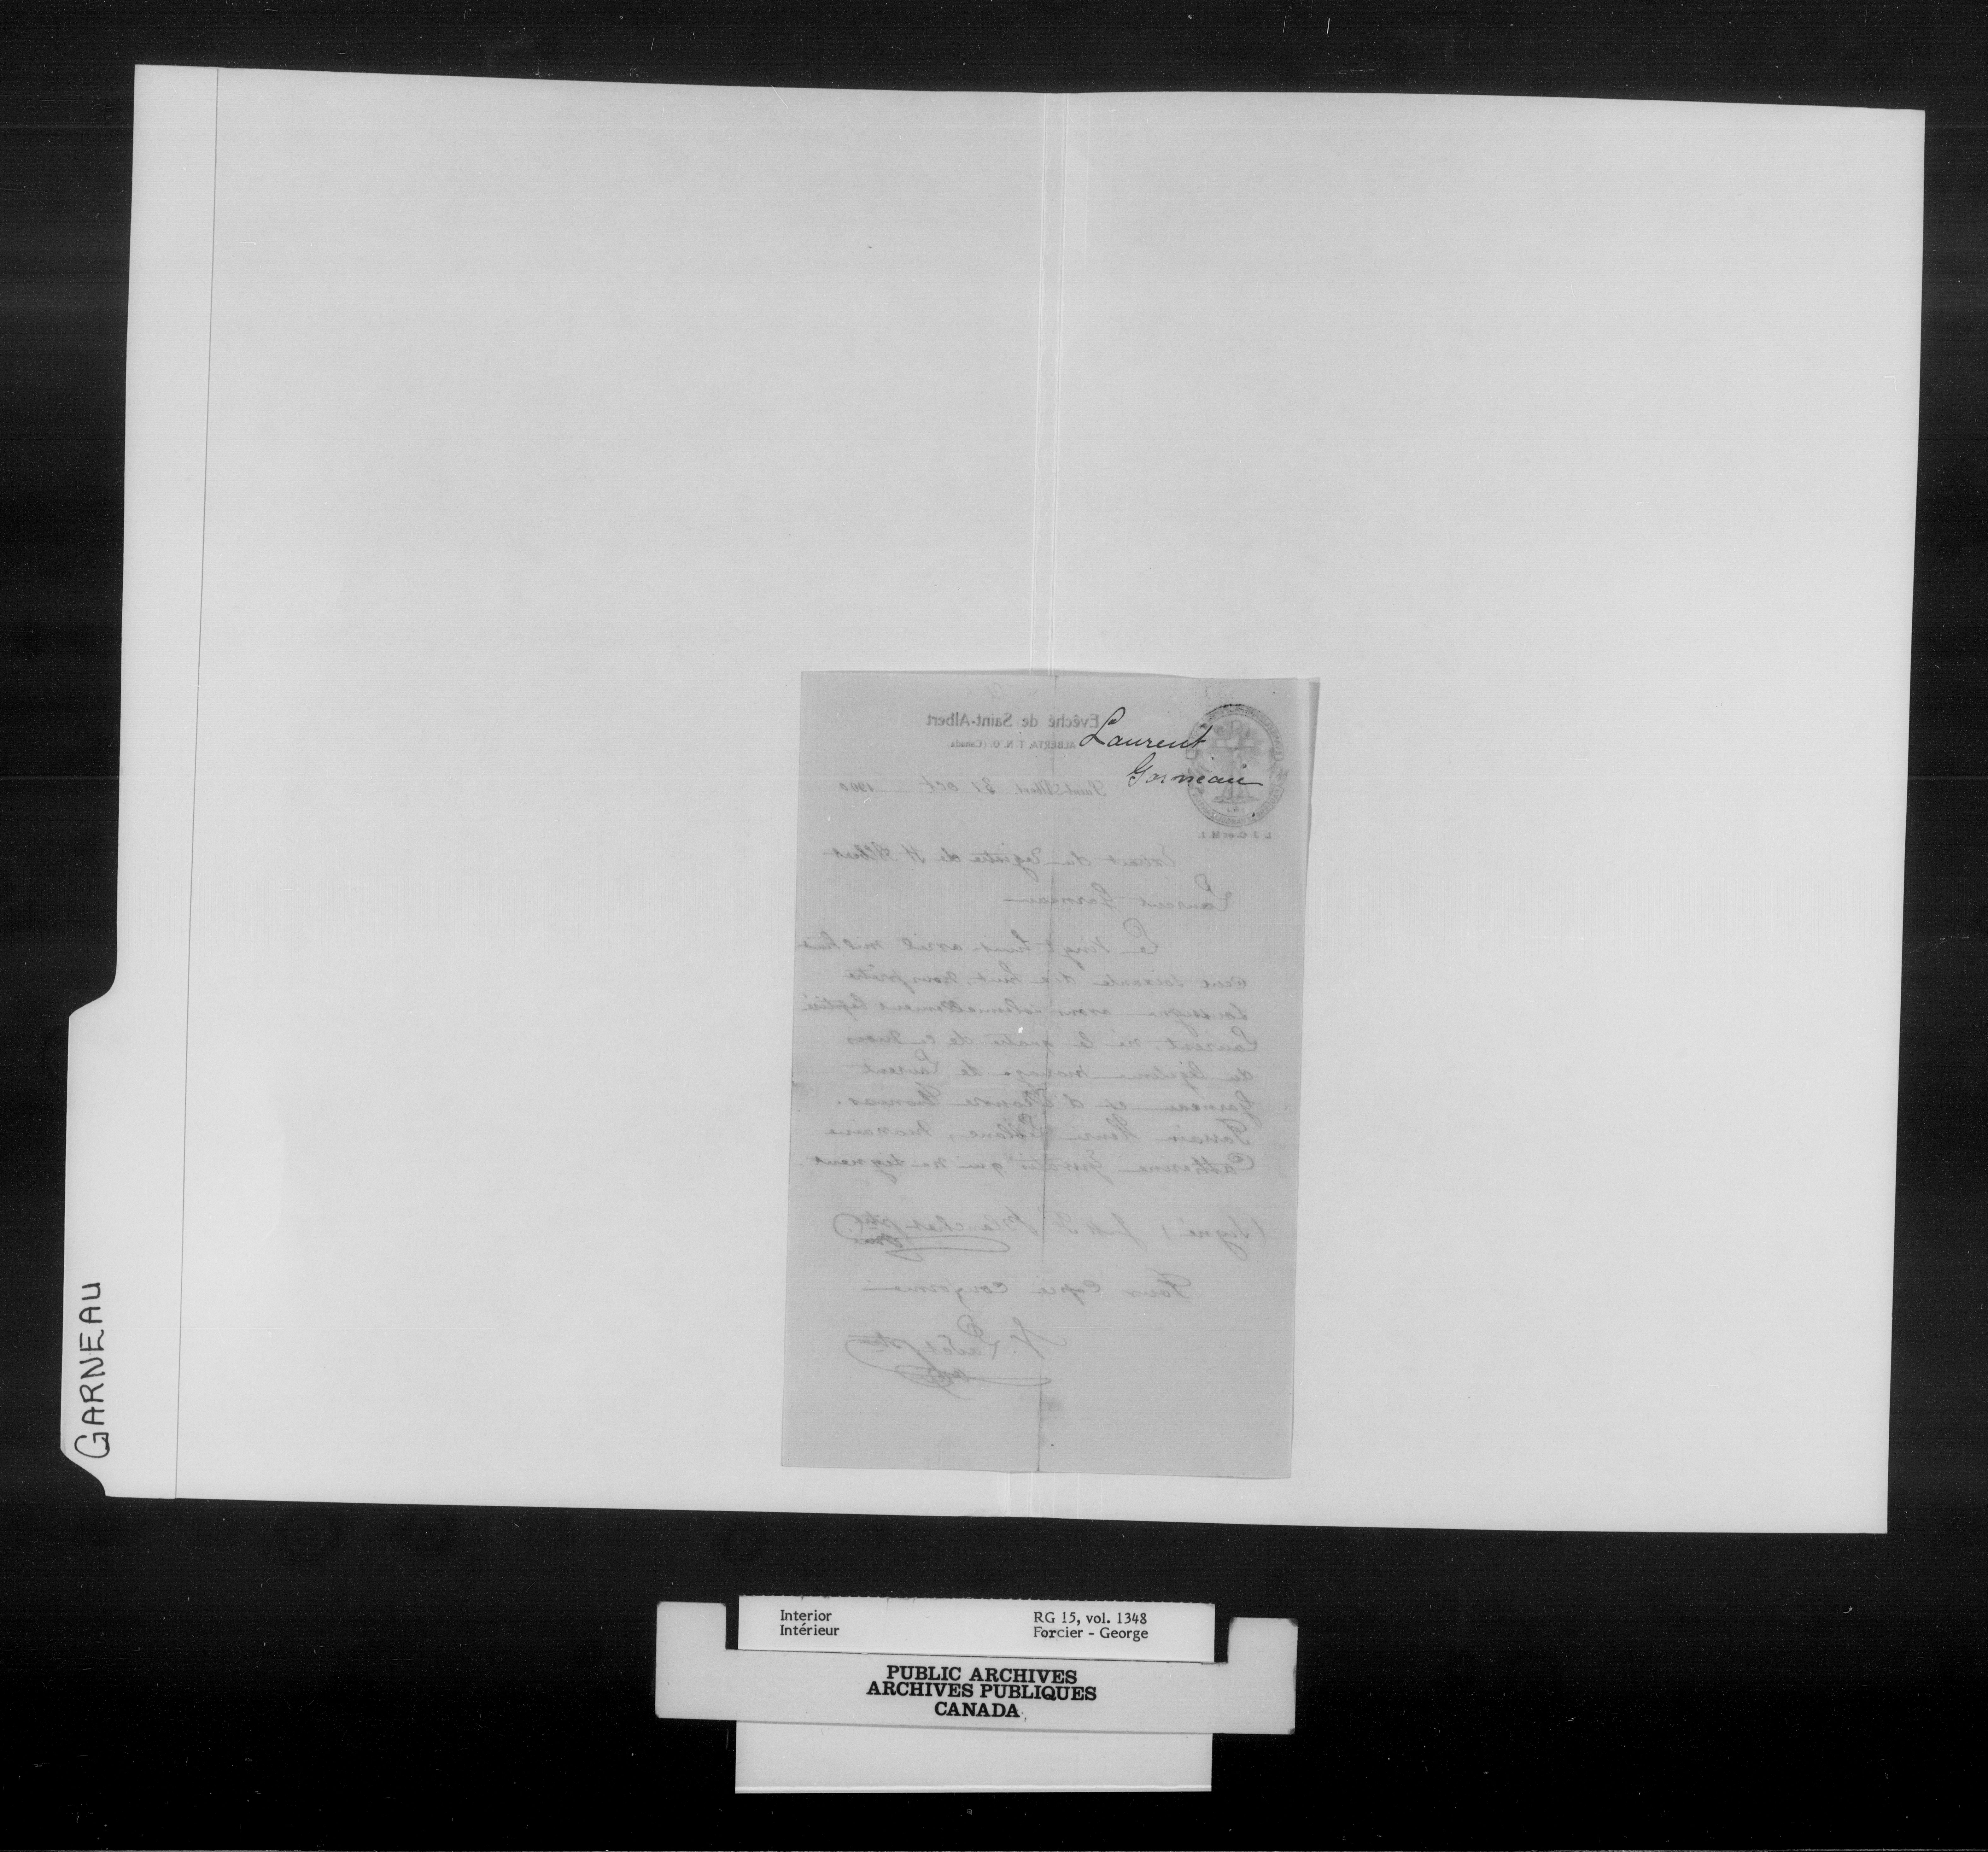 Laurent
Garneau
Evêché de Saint-Albert
ALBERTA, T. N. O. (Canada)
Saint-Albert, 31 oct 1900
L. J. C. et M. I.
Extrait du Registre de St Albert
Laurent Garneau
Le vingt huit avril mil huit
cent soixante dix huit, nous prêtre
soussigné avons solennellement baptisé
Laurent, né le quatre de ce mois
du légitime mariage de Laurent
Garneau et d'Eleonore Thomas.
Parrain Henri Leblanc, marraine
Catherine qui ne signent.
(Signé) Blanchet ptre
omi
Pour copie conforme
ptre
omi
GARNEAU
Interior
Intérieur
RG 15, vol. 1348
Forcier - George
PUBLIC ARCHIVES
ARCHIVES PUBLIQUES
CANADA